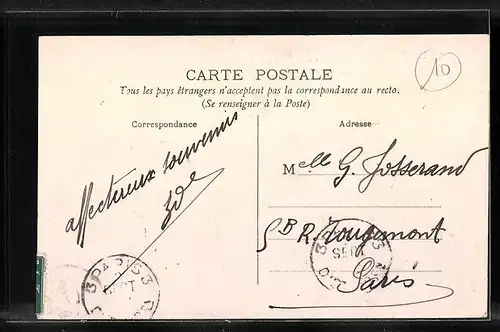 10
CARTE POSTALE
Tous les pays étrangers n'acceptent pas la correspondance au recto.
(Se renseigner à la Poste)
Correspondance
Adresse
affectueux souvenirs
Melle G. Josserand
R. Rougemont
Paris
PARIS